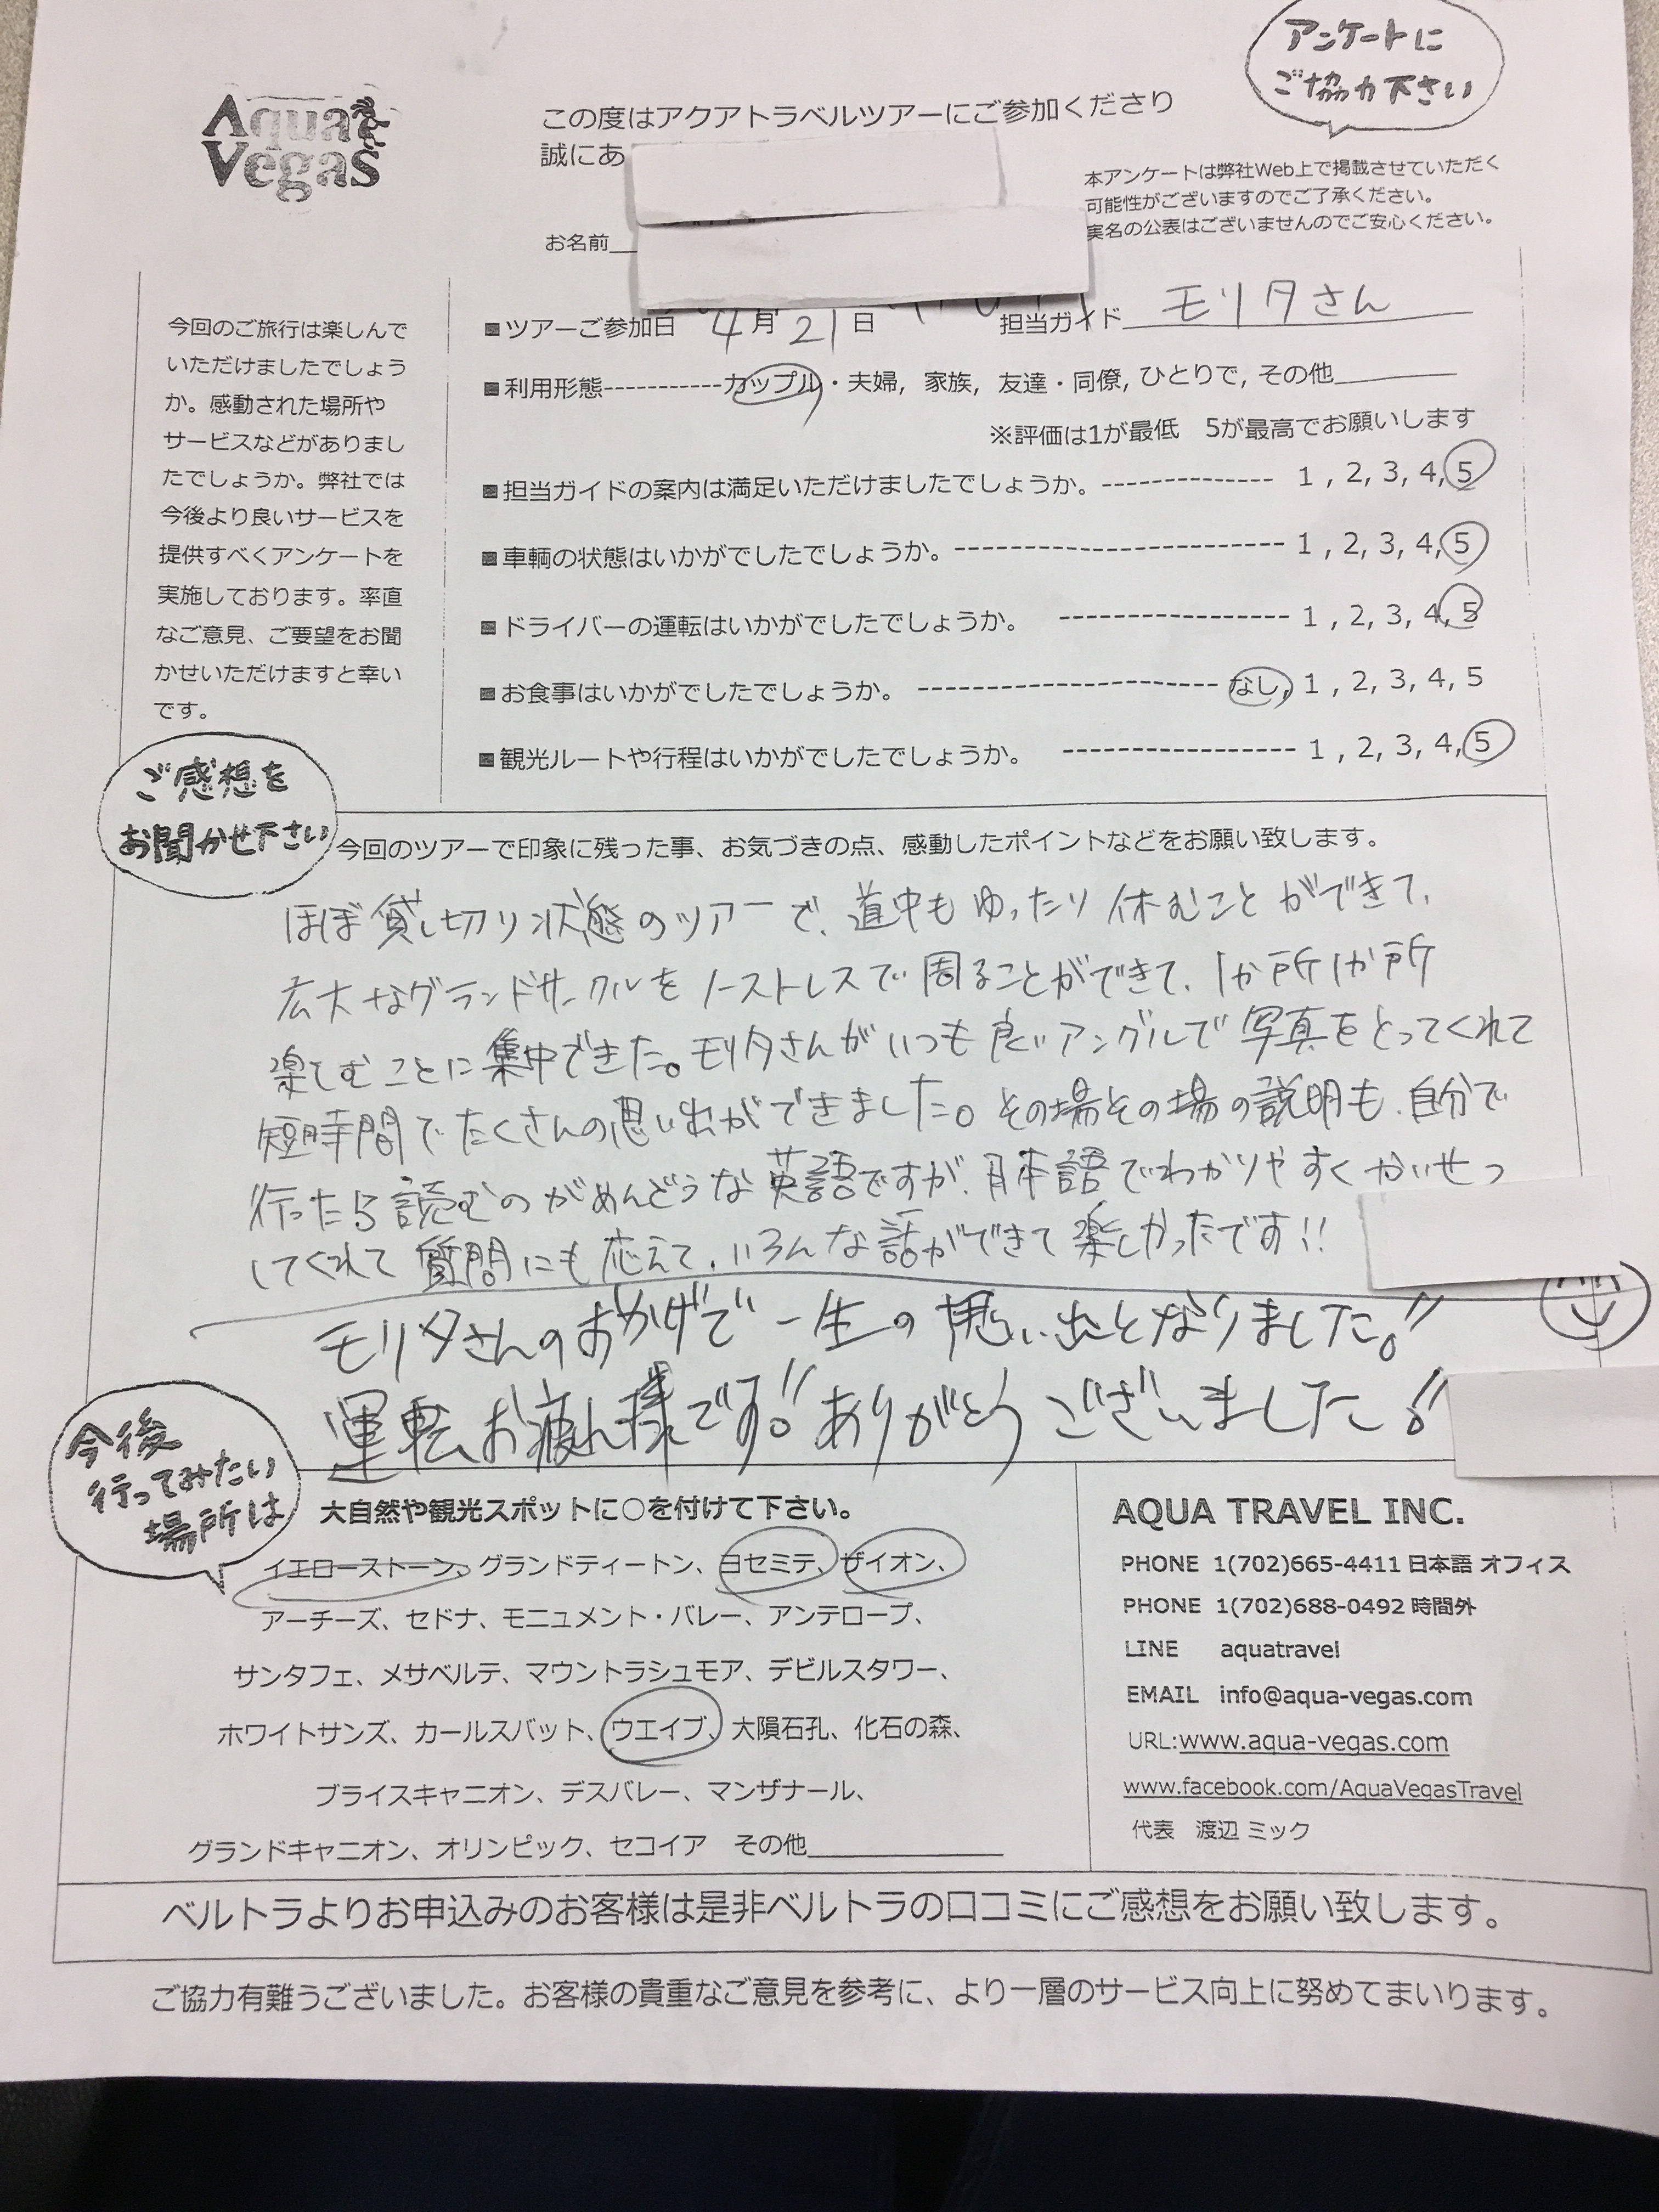 アンケートに
ご協力下さい
Aqua
Vegas
この度はアクアトラベルツアーにご参加くださり
誠にあ
本アンケートは弊社Web上で掲載させていただく
可能性がございますのでご了承ください。
実名の公表はございませんのでご安心ください。
お名前
今回のご旅行は楽しんで
いただけましたでしょう
か。感動された場所や
サービスなどがありまし
たでしょうか。弊社では
今後より良いサービスを
提供すべくアンケートを
実施しております。率直
なご意見、ご要望をお聞
かせいただけますと幸い
です。
■ツアーご参加日 4月21日 担当ガイド モリタさん
■利用形態-----------カップル・夫婦, 家族, 友達・同僚, ひとりで, その他
※評価は1が最低 5が最高でお願いします
■担当ガイドの案内は満足いただけましたでしょうか。------------- 1 , 2, 3, 4, 5
■車輌の状態はいかがでしたでしょうか。------------------------- 1 , 2, 3, 4, 5
■ドライバーの運転はいかがでしたでしょうか。 ----------------- 1 , 2, 3, 4, 5
■お食事はいかがでしたでしょうか。 ---------------------- なし, 1 , 2, 3, 4, 5
■観光ルートや行程はいかがでしたでしょうか。 ----------------- 1 , 2, 3, 4, 5
ご感想を
お聞かせ下さい
今回のツアーで印象に残った事、お気づきの点、感動したポイントなどをお願い致します。
ほぼ貸し切り状態のツアーで、道中もゆったり休むことができて、
広大なグランドサークルをノーストレスで周ることができて、1か所1か所
楽しむことに集中できた。モリタさんがいつも良いアングルで写真をとってくれて
短時間でたくさんの思い出ができました。その場その場の説明も、自分で
行ったら読むのがめんどうな英語ですが、日本語でわかりやすくかいせつ
してくれて質問にも応えて、いろんな話ができて楽しかったです!!
モリタさんのおかげで一生の思い出となりました。!!
運転お疲れ様です。!!ありがとうございました。!!
今後
行ってみたい
場所は
大自然や観光スポットに○を付けて下さい。
イエローストーン、グランドティートン、ヨセミテ、ザイオン、
アーチーズ、セドナ、モニュメント・バレー、アンテロープ、
サンタフェ、メサベルテ、マウントラシュモア、デビルスタワー、
ホワイトサンズ、カールスバット、ウエイブ、大隕石孔、化石の森、
ブライスキャニオン、デスバレー、マンザナール、
グランドキャニオン、オリンピック、セコイア その他
AQUA TRAVEL INC.
PHONE 1(702)665-4411 日本語 オフィス
PHONE 1(702)688-0492 時間外
LINE aquatravel
EMAIL info@aqua-vegas.com
URL:www.aqua-vegas.com
www.facebook.com/AquaVegasTravel
代表 渡辺 ミック
ベルトラよりお申込みのお客様は是非ベルトラの口コミにご感想をお願い致します。
ご協力有難うございました。お客様の貴重なご意見を参考に、より一層のサービス向上に努めてまいります。